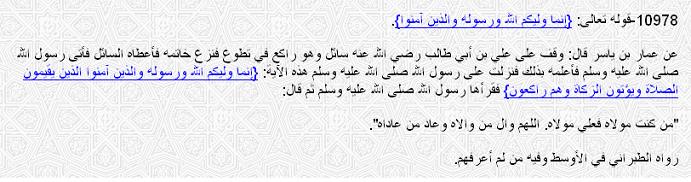 10978-قوله تعالى: {إنما وليكم الله ورسوله والذين آمنوا}.
عن عمار بن ياسر قال: وقف على علي بن أبي طالب رضي الله عنه سائل وهو راكع في تطوع فنزع خاتمه فأعطاه السائل فأتى رسول الله
صلى الله عليه وسلم فأعلمه بذلك فنزلت على رسول الله صلى الله عليه وسلم هذه الآية: {إنما وليكم الله ورسوله والذين آمنوا الذين يقيمون
الصلاة ويؤتون الزكاة وهم راكعون} فقرأها رسول الله صلى الله عليه وسلم ثم قال:
"من كنت مولاه فعلي مولاه. اللهم وال من والاه وعاد من عاداه".
رواه الطبراني في الأوسط وفيه من لم أعرفهم.